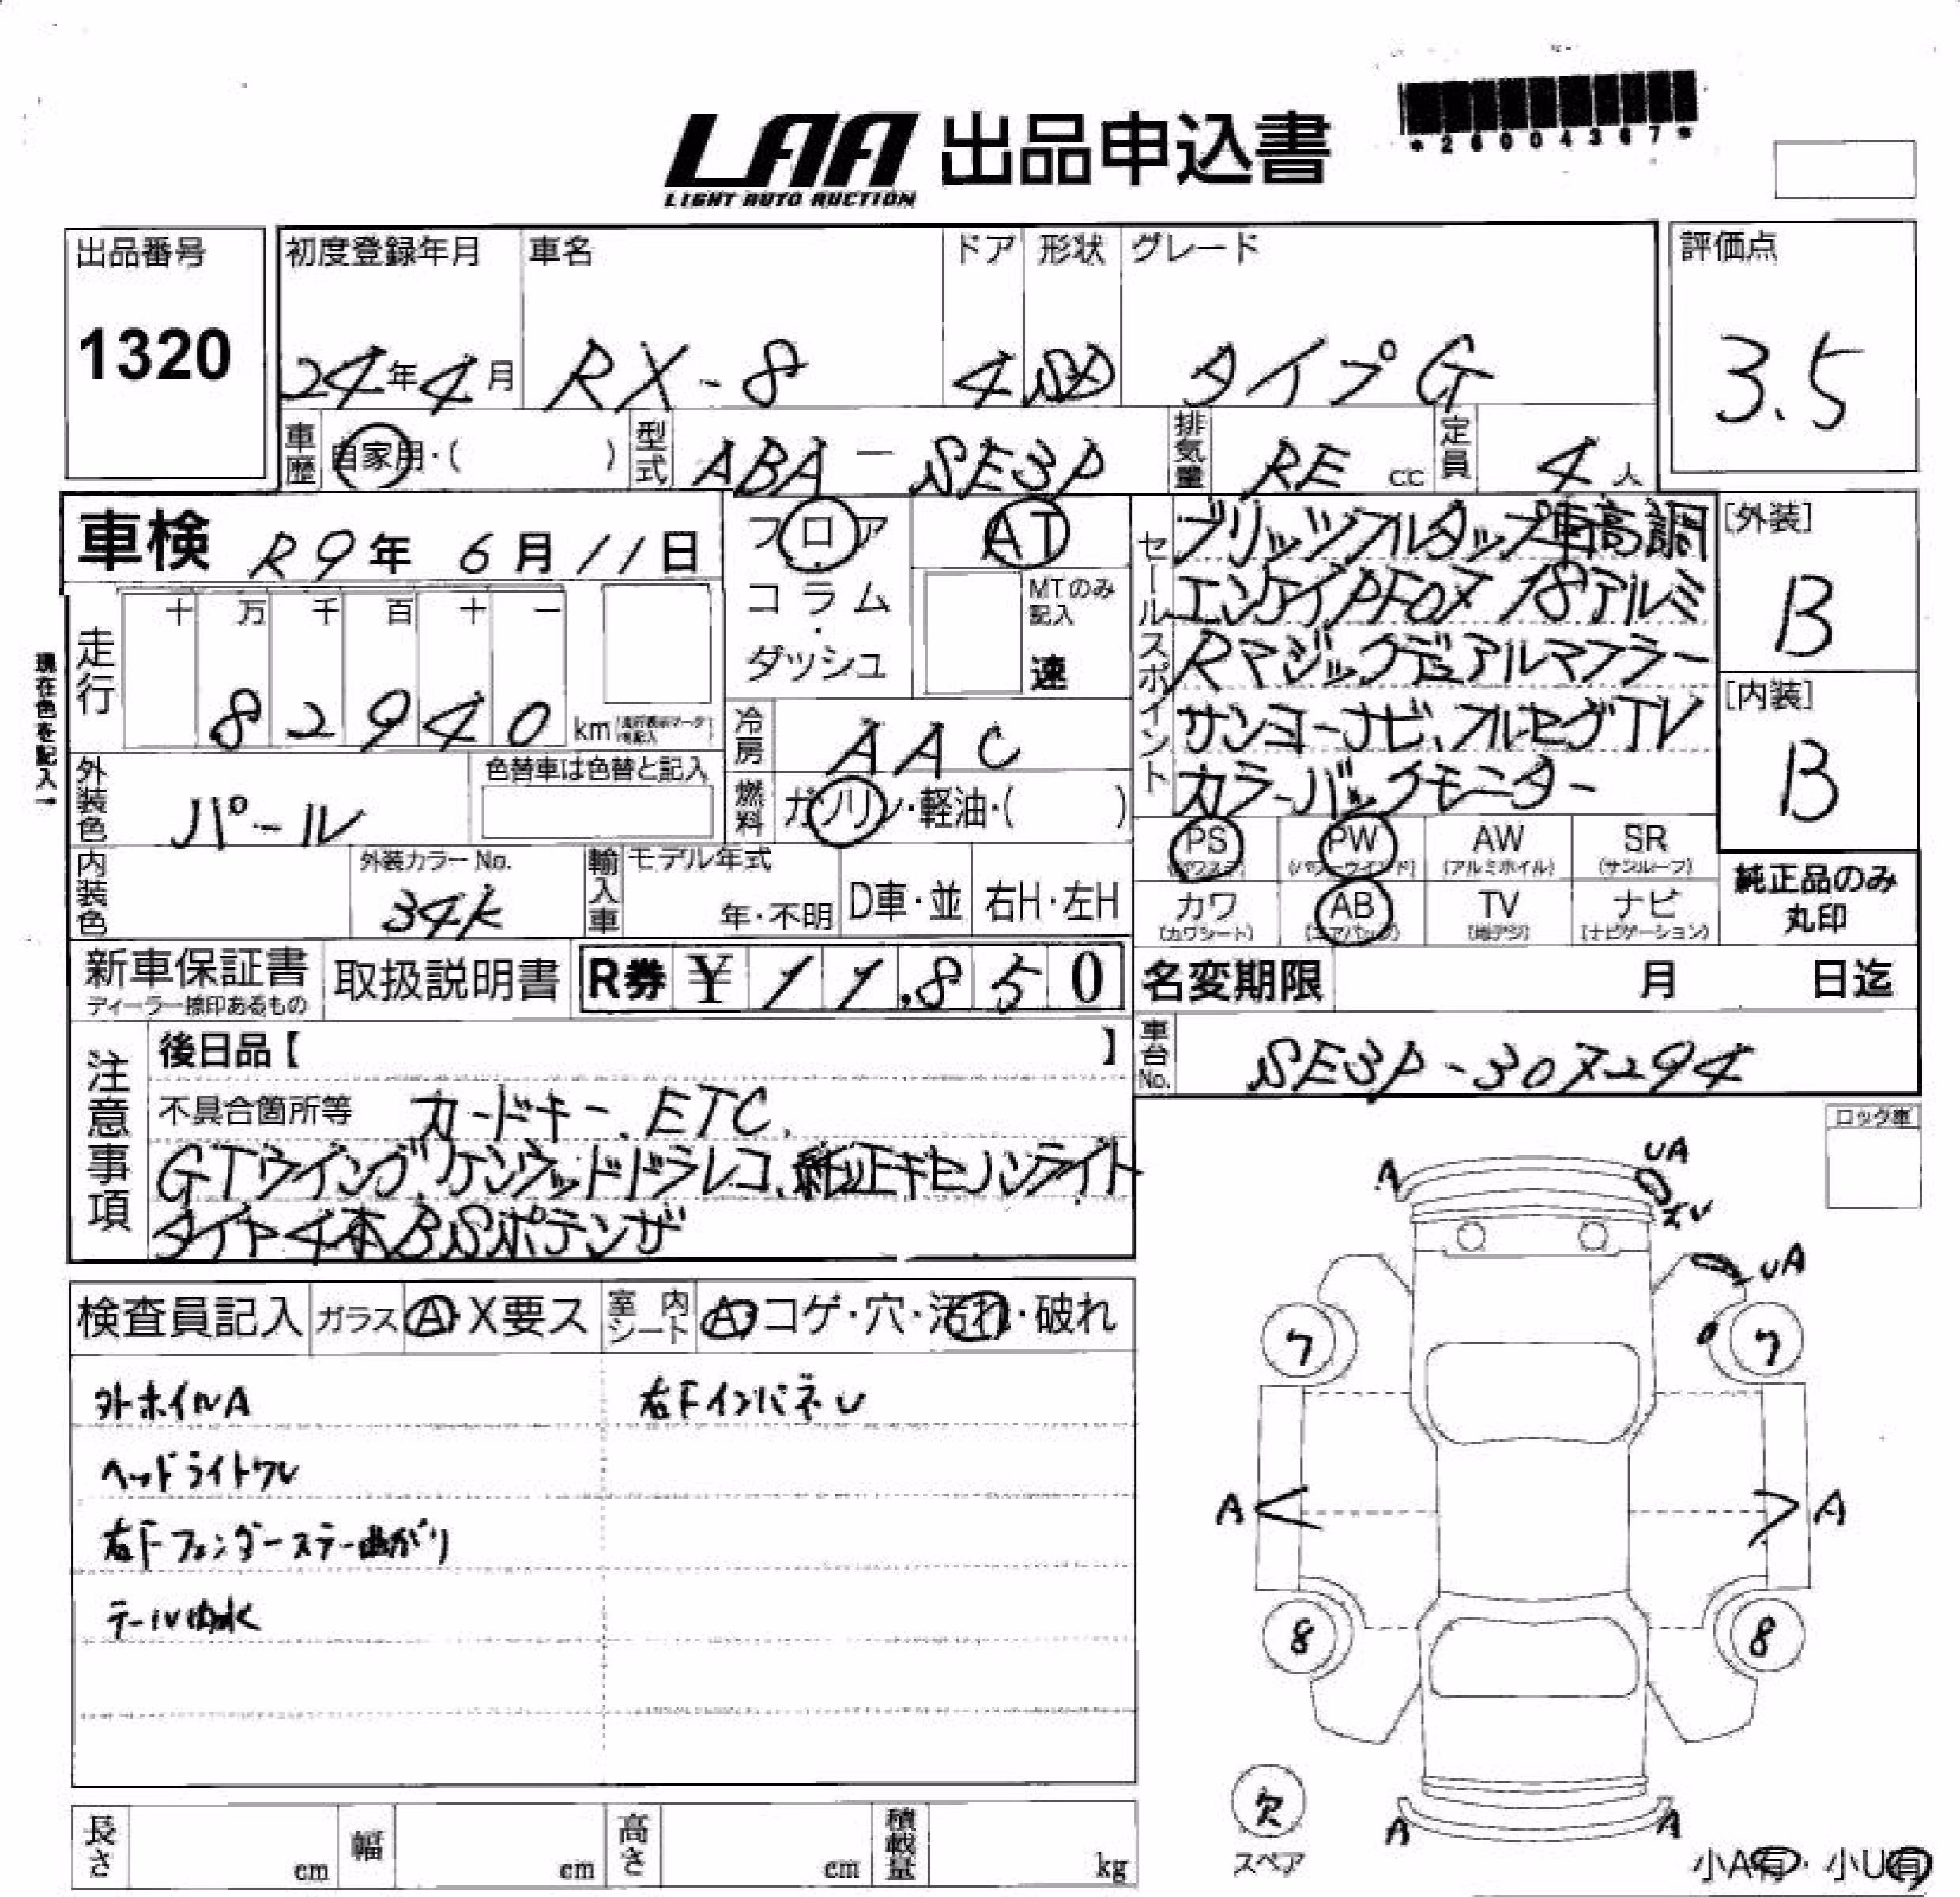 LAA 出品申込書
LIGHT AUTO AUCTION
*26004367*
出品番号
1320
初度登録年月
24年4月
車名
RX-8
ドア
4
形状
SD
グレード
タイプG
評価点
3.5
車歴 自家用・( )
型式 ABA-SE3P
排気量 RE cc
定員 4人
車検 R9年6月11日
フロア
コラム
・
ダッシュ
AT
MTのみ記入
速
セールスポイント
ブリッツフルタップ車高調
エンケイPF07 18アルミ
Rマジックデュアルマフラー
サンヨーナビ、フルセグTV
カラーバックモニター
[外装]
B
[内装]
B
現在色を記入→
走行
十 万 千 百 十 一
82940 km
外装色 パール
色替車は色替と記入
冷房 AAC
燃料 ガソリン・軽油・( )
内装色
外装カラーNo.
34K
輸入車
モデル年式
年・不明
D車・並
右H・左H
PS (パワステ)
PW (パワーウインド)
AW (アルミホイル)
SR (サンルーフ)
カワ (カワシート)
AB (エアバッグ)
TV (地デジ)
ナビ (ナビゲーション)
純正品のみ
丸印
新車保証書
ディーラー捺印あるもの
取扱説明書
R券 ¥11,850
名変期限 月 日迄
注意事項
後日品【 】
不具合箇所等 カードキー、ETC、
GTウイング、ケンウッドドラレコ、純正キセノンライト
タイヤ4本BSポテンザ
車台No. SE3P-307294
ロック車
検査員記入
ガラス A・X要ス
室内シート A・コゲ・穴・汚れ・破れ
外ホイルA
右Fインパネレ
ヘッドライトワレ
右Fフェンダーステー曲がり
テール内水
A
UA
UA
7
7
A
A
8
8
欠
スペア
A
A
小A有・小U有
長さ cm
幅 cm
高さ cm
積載量 kg